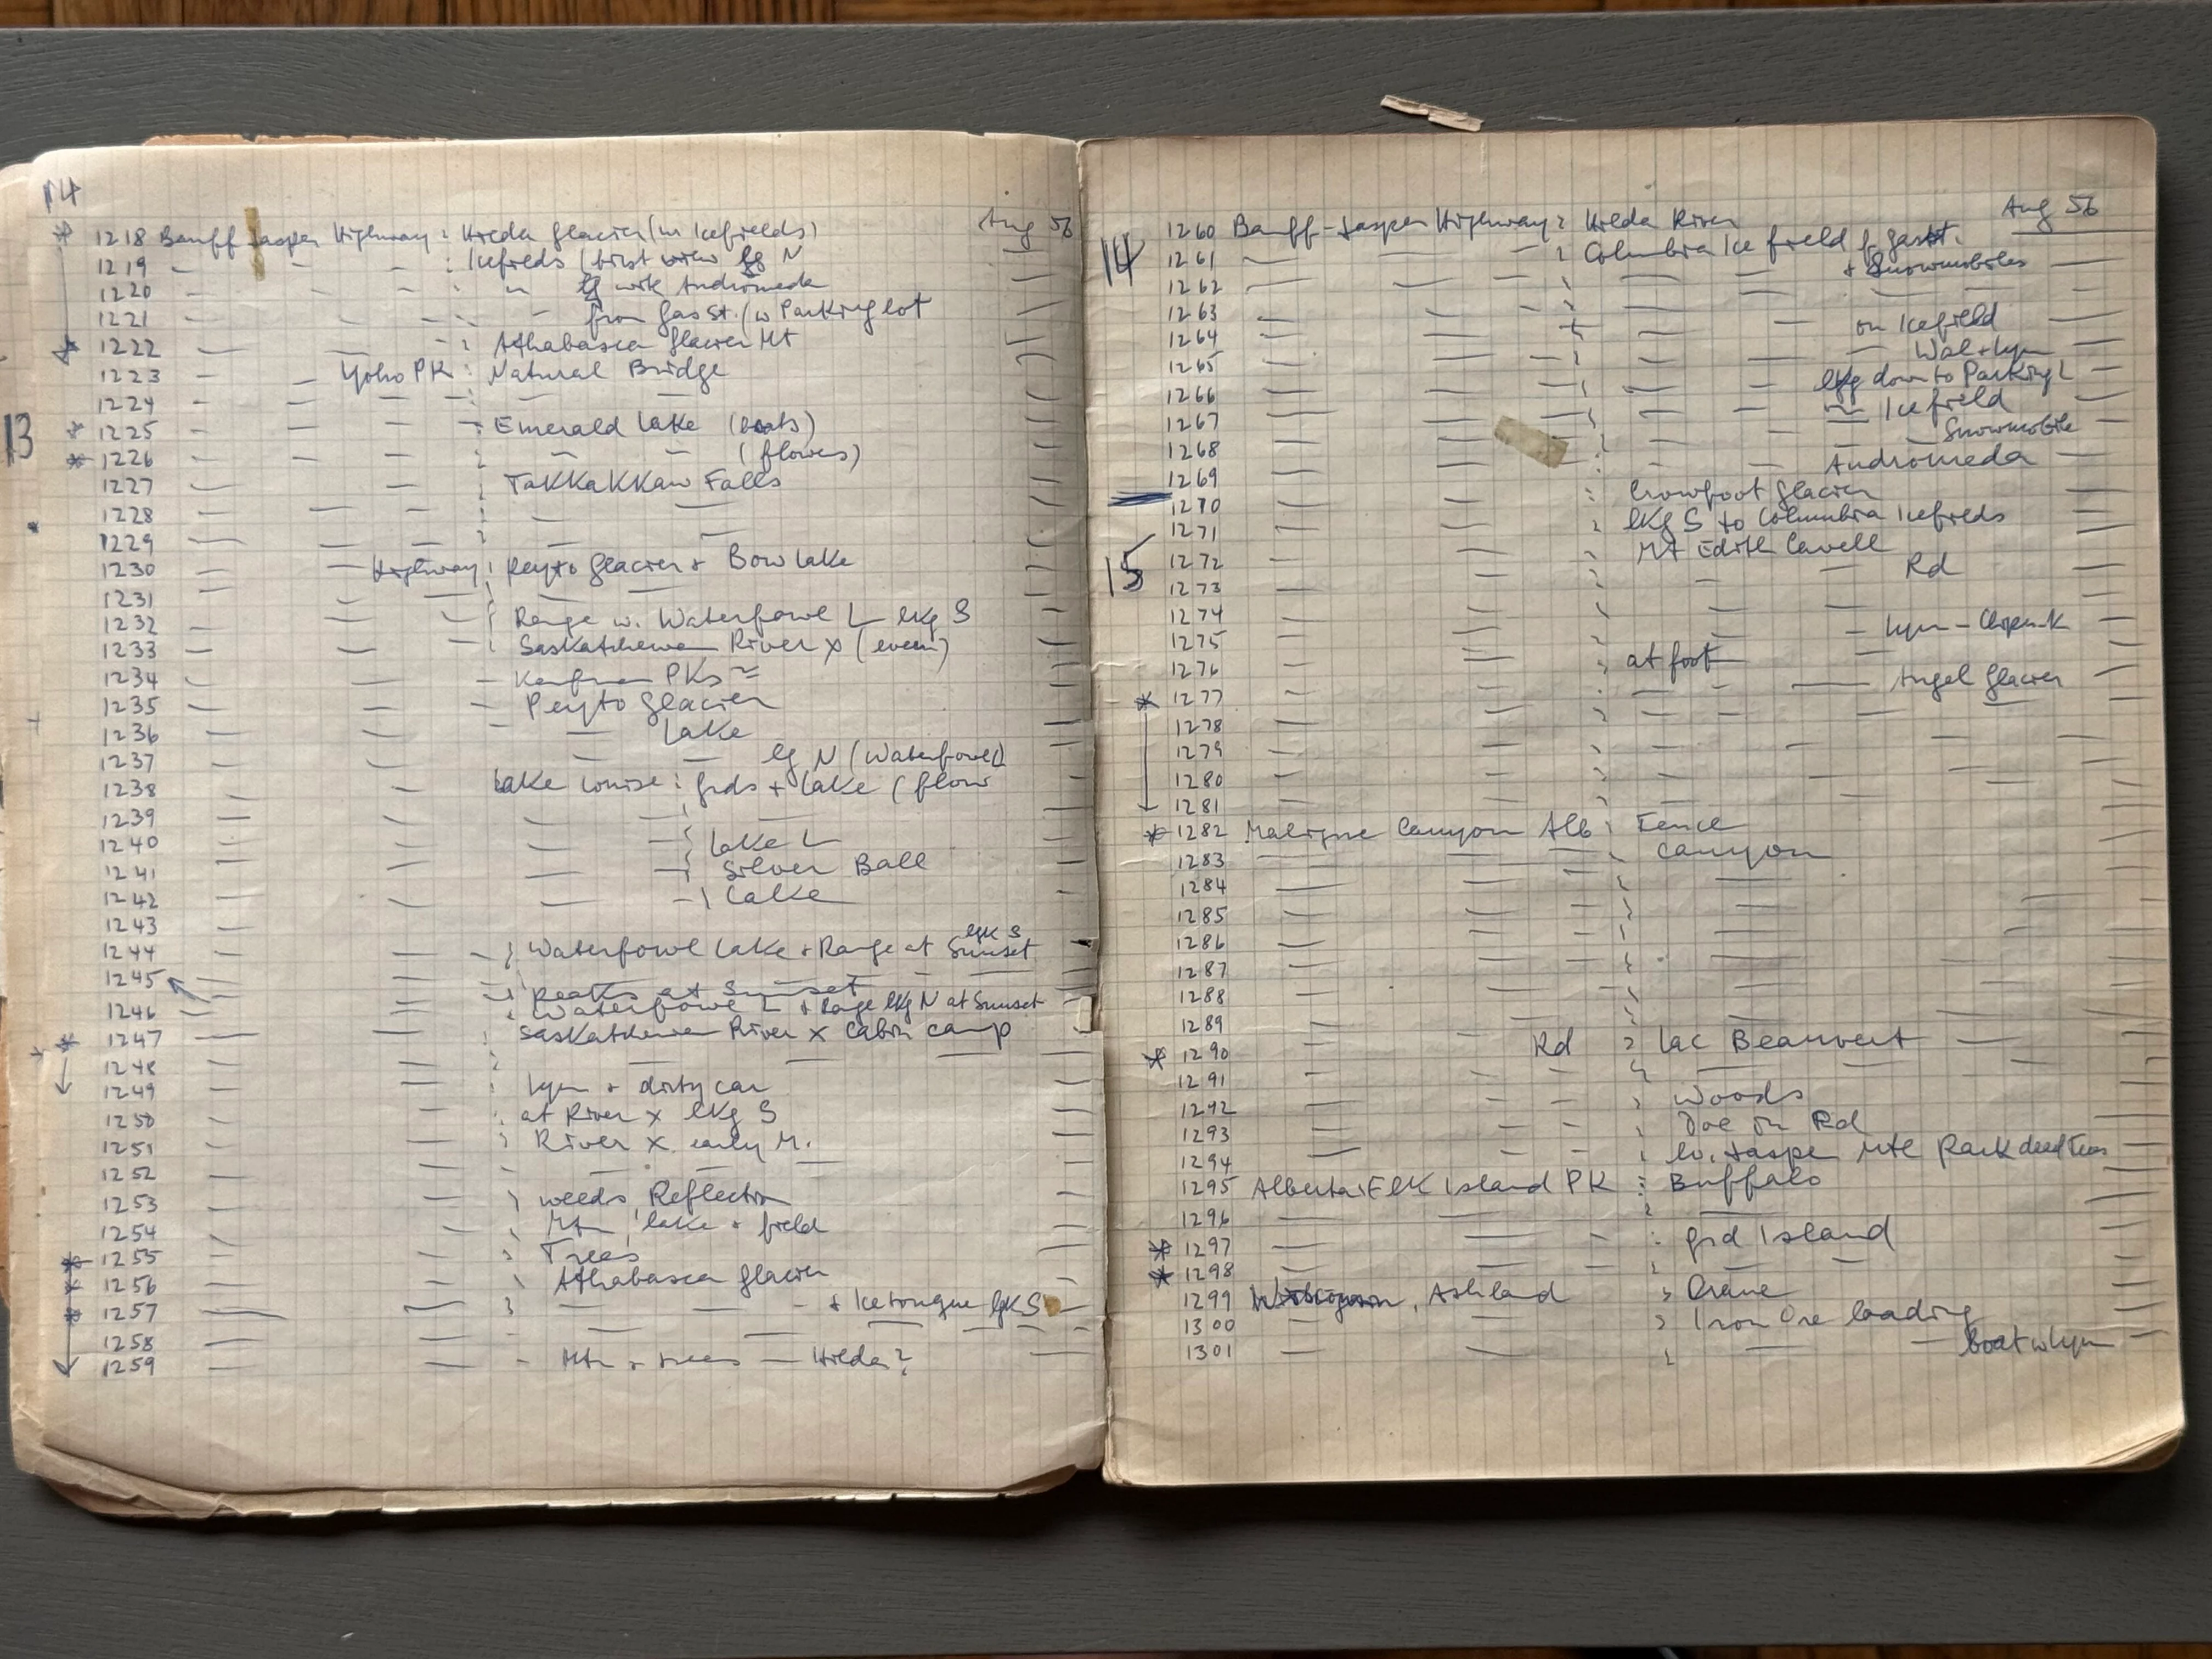 14
Aug 56
1218 Banff Jasper Highway : Hilda Glacier (w Icefields)
1219 — — — : Icefields (first view lkg N
1220 — — — " lkg with Andromeda
1221 — — — : — from Gas St. (w Parking lot
1222 — — — : Athabasca Glacier Mt
1223 — — Yoho PK : Natural Bridge
1224 — — — — : — —
13
1225 — — — : Emerald Lake (boats)
1226 — — — : — — (flowers)
1227 — — : Takkakkaw Falls
1228 — — — : — —
1229 — — — : — —
1230 — — Highway : Peyto Glacier + Bow Lake
1231 — — — : — —
1232 — — : Range w. Waterfowl L lkg S
1233 — — : Saskatchewan River X (even)
1234 — — — PKs
1235 — — — Peyto Glacier
1236 — — — — Lake
1237 — — — — lkg N (Waterfowl)
1238 — — Lake Louise : grds + Lake (flow
1239 — — — — :
1240 — — — — : Lake L
1241 — — — — : Silver Ball
1242 — — — — : Lake
1243
1244 — : Waterfowl Lake + Range at Sunset lgk S
1245 — — — : — — — —
Peaks at Sunset
1246 — — : Waterfowl L + Range lkg N at Sunset
1247 — — : Saskatchewan River X Cabin camp
1248 — — : — — —
1249 — — : Lyn + dirty car
1250 — — : at River X lkg S
1251 — — : River X early M.
1252 — — — — —
1253 — — : weeds, Reflection
1254 — — — : Mtn, lake + field
1255 — — — : Trees
1256 — — — : Athabasca Glacier
1257 — — : — — — + Icetongue lgk S
1258 — — — — — —
1259 — — - Mtn + trees — Hilda?
Aug 56
1260 Banff-Jasper Highway : Hilda River
14
1261 — — — : Columbia Ice field f. gasst.
1262 — — — : — — + Snowmobiles
1263 — — — : — — —
1264 — — — : — — on Icefield
1265 — — — : — — — Wal + Lyn
1266 — — — : — — lkg down to Parking L
1267 — — — : — — — Icefield
1268 — — — : — — — Snowmobile
1269 — — : — — Andromeda
1270 — — : Crowfoot Glacier
1271 — — : lkg S to Columbia Icefields
15
1272 — — : Mt Edith Cavell
1273 — — : — — Rd
1274 — — : — —
1275 — — : — — — Lyn –
1276 — — : at foot — —
1277 — — : — — — Angel Glacier
1278 — — : — — — —
1279 — — : — — — —
1280 — — : — — — —
1281 — — : — — — —
1282 Maligne Canyon Alb : Fence
1283 — — — : Canyon
1284 — — — : —
1285 — — — : —
1286 — — — : —
1287 — — — : —
1288 — — — : —
1289 — — — : —
1290 — — Rd : Lac Beauvert —
1291 — — — : — — —
1292 — — — : Woods
1293 — — — : Doe on Rd
1294 — — — : lv. Jasper Ntl Park dead Trees
1295 Alberta: Elk Island PK : Buffalo
1296 — — — : —
1297 — — - : grd Island
1298 — — — : — —
1299 Wisconsin, Ashland : Crane
1300 — — : Iron Ore loading
1301 — — : — — boat w Lyn